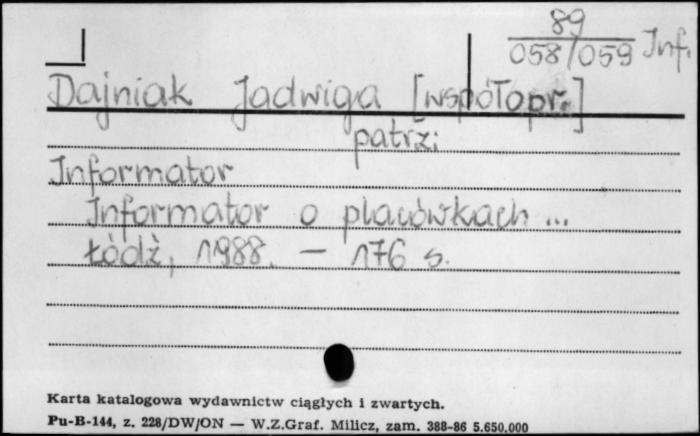 89
058/059 Inf.
Dajniak Jadwiga [współopr.]
patrz:
Informator
Informator o placówkach ...
Łódź, 1988. — 176 s.
Karta katalogowa wydawnictw ciągłych i zwartych.
Pu-B-144, z. 228/DW/ON — W.Z.Graf. Milicz, zam. 388-86 5.650.000